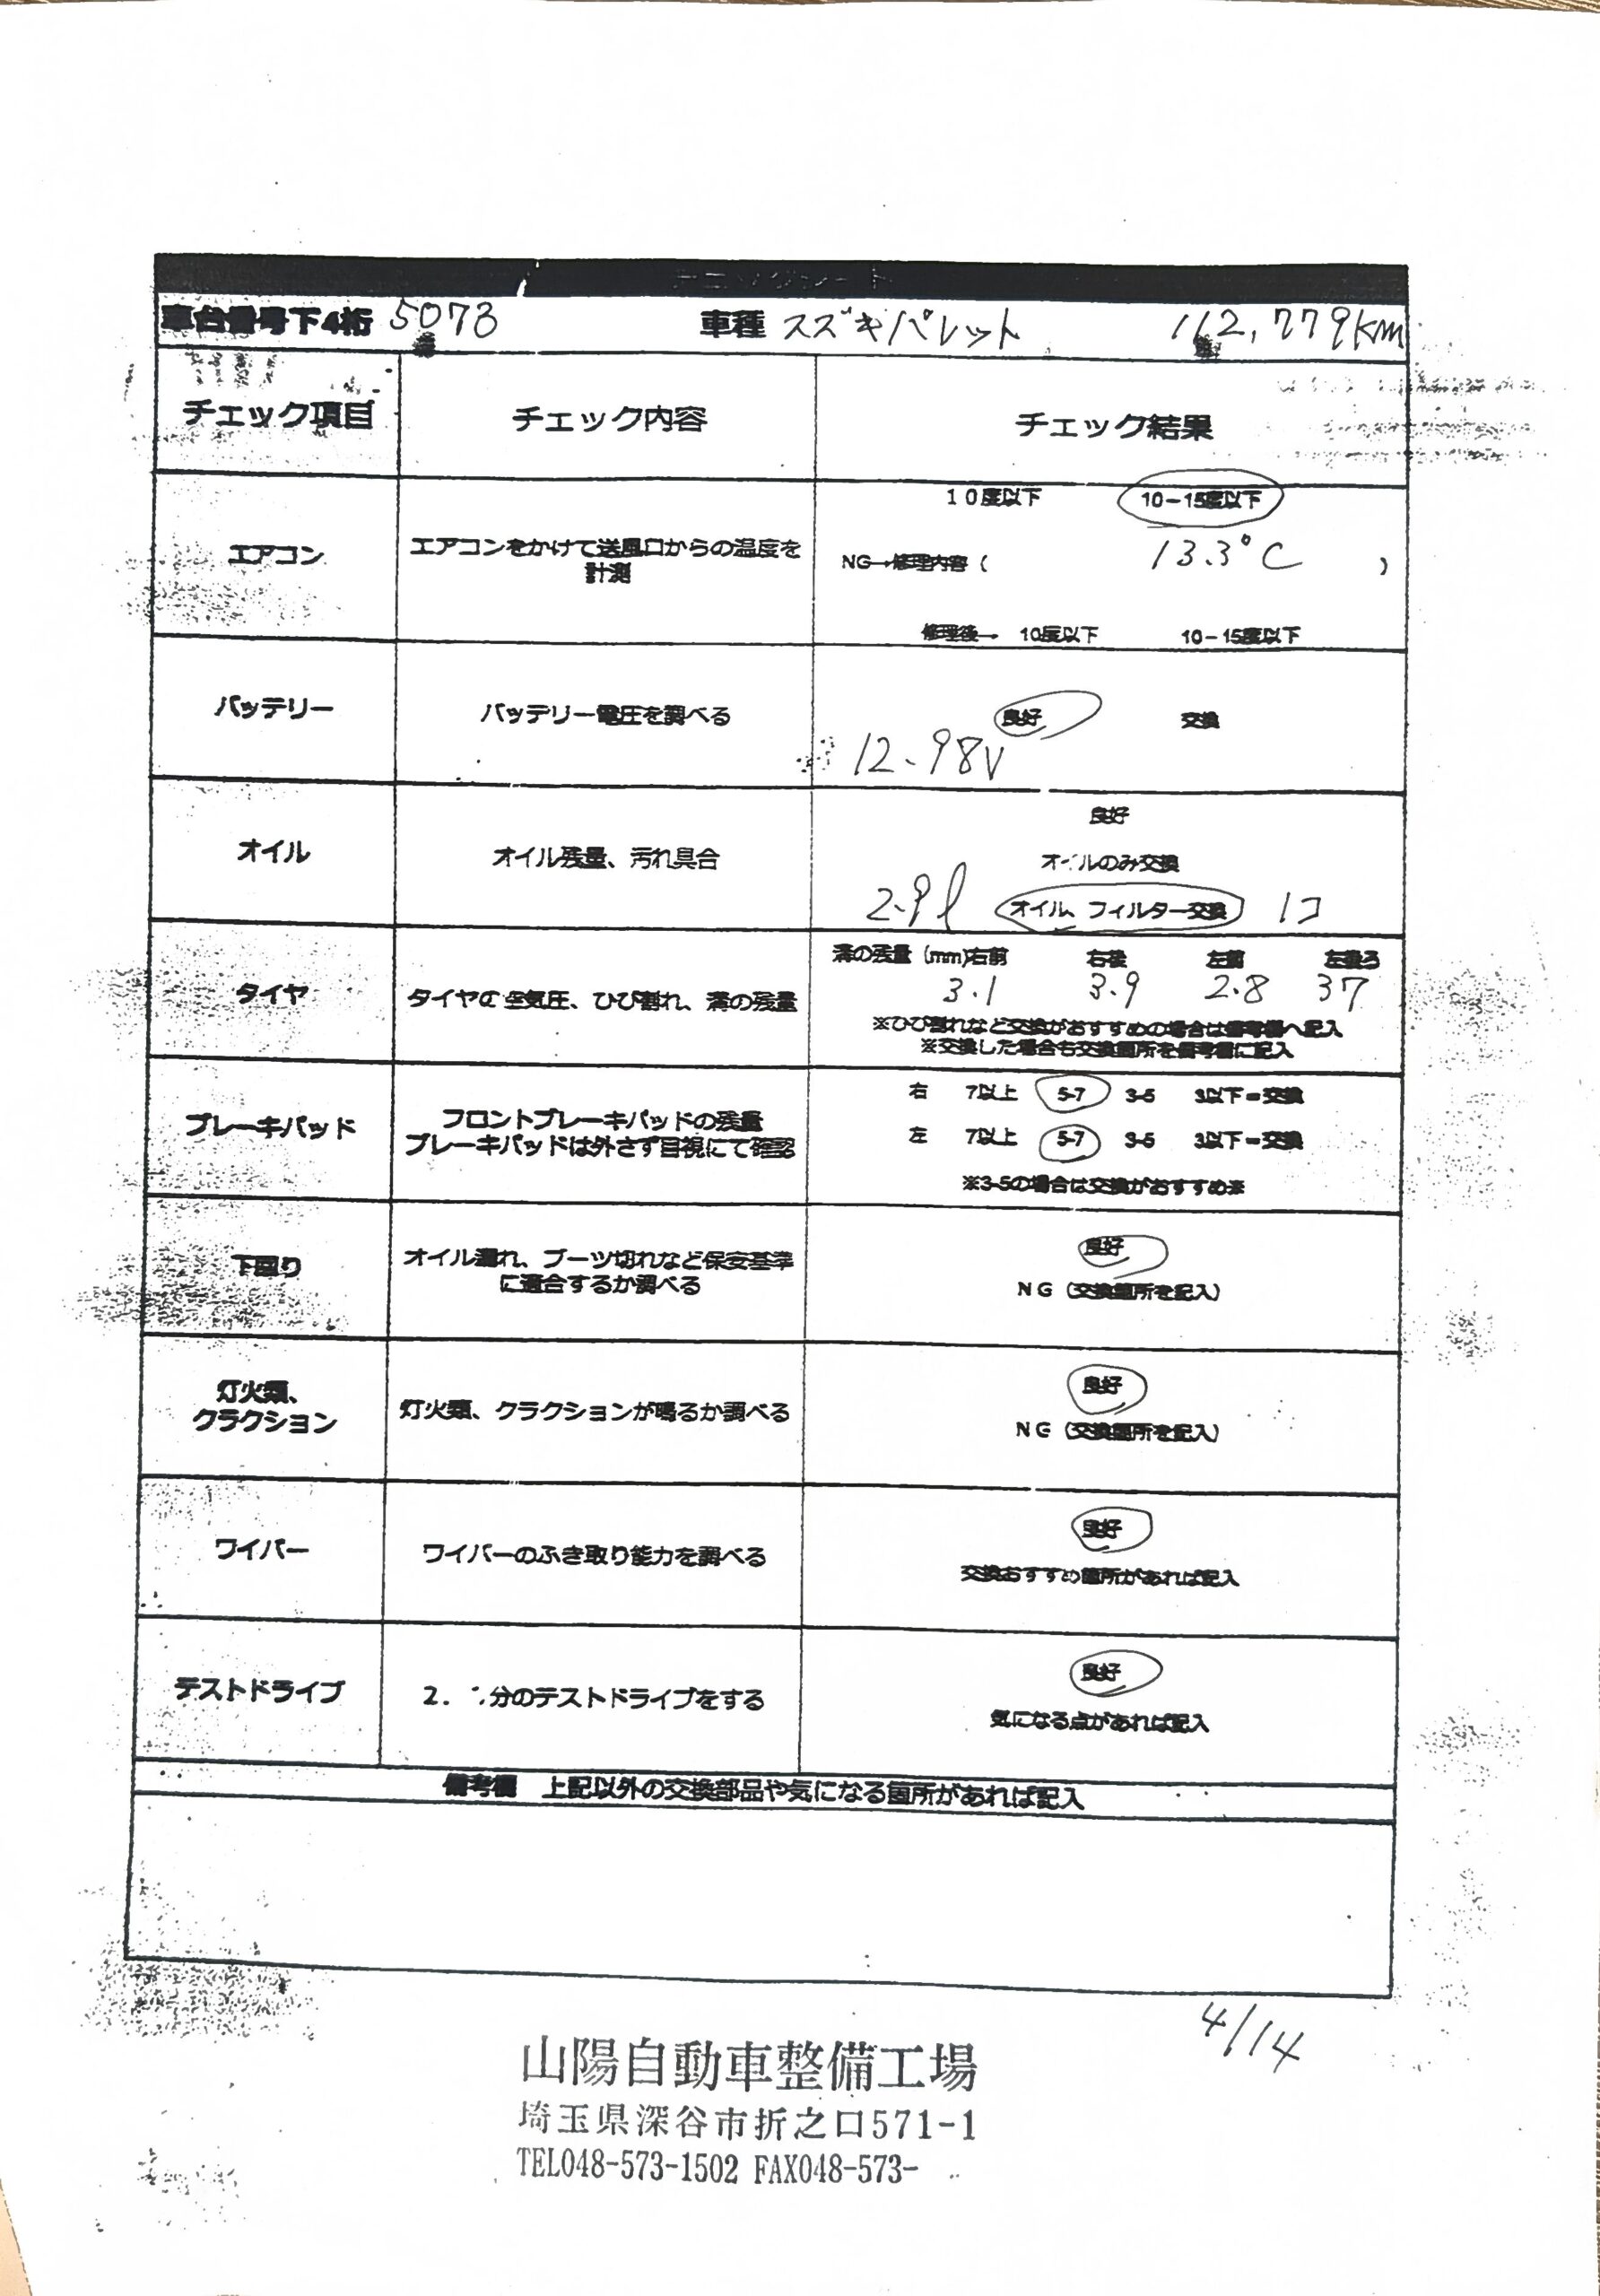 チェックシート
車台番号下4桁 5073 車種 スズキパレット 112,779km
チェック項目 チェック内容 チェック結果
10度以下 10-15度以下
エアコン エアコンをかけて送風口からの温度を
計測
NG→修理内容( 13.3°C )
修理後→ 10度以下 10-15度以下
バッテリー バッテリー電圧を調べる 良好 交換
12.98V
良好
オイル オイル残量、汚れ具合 オイルのみ交換
2.9l オイル、フィルター交換 1コ
溝の残量(mm)右前 右後 左前 左後ろ
タイヤ タイヤの空気圧、ひび割れ、溝の残量 3.1 3.9 2.8 37
※ひび割れなど交換がおすすめの場合は備考欄へ記入
※交換した場合も交換箇所を備考欄に記入
右 7以上 5-7 3-5 3以下=交換
ブレーキパッド フロントブレーキパッドの残量
ブレーキパッドは外さず目視にて確認
左 7以上 5-7 3-5 3以下=交換
※3-5の場合は交換がおすすめ※
下回り オイル漏れ、ブーツ切れなど保安基準
に適合するか調べる
良好
NG(交換箇所を記入)
灯火類、
クラクション
灯火類、クラクションが鳴るか調べる
良好
NG(交換箇所を記入)
ワイパー ワイパーのふき取り能力を調べる
良好
交換おすすめ箇所があれば記入
テストドライブ 2. 分のテストドライブをする
良好
気になる点があれば記入
備考欄 上記以外の交換部品や気になる箇所があれば記入
4/14
山陽自動車整備工場
埼玉県深谷市折之口571-1
TEL048-573-1502 FAX048-573-